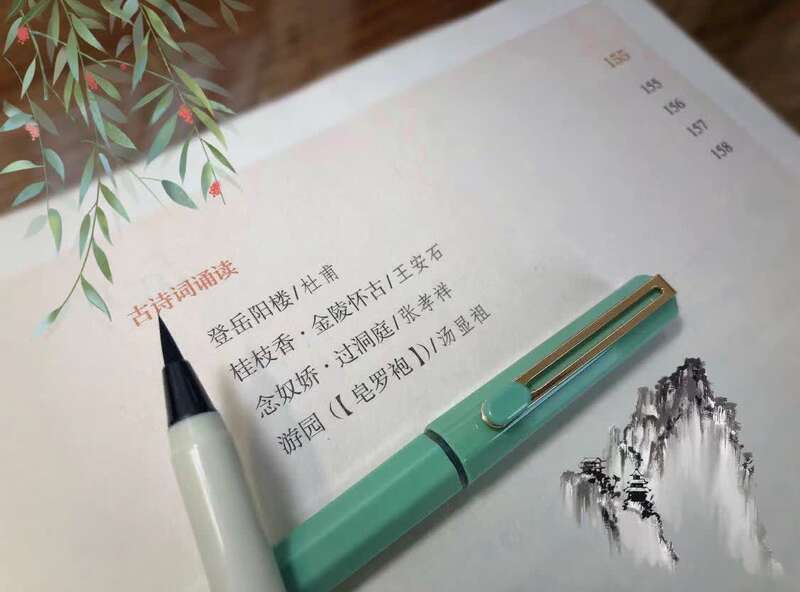 古诗词诵读 155
登岳阳楼/杜甫 155
桂枝香·金陵怀古/王安石 156
念奴娇·过洞庭/张孝祥 157
游园（【皂罗袍】）/汤显祖 158